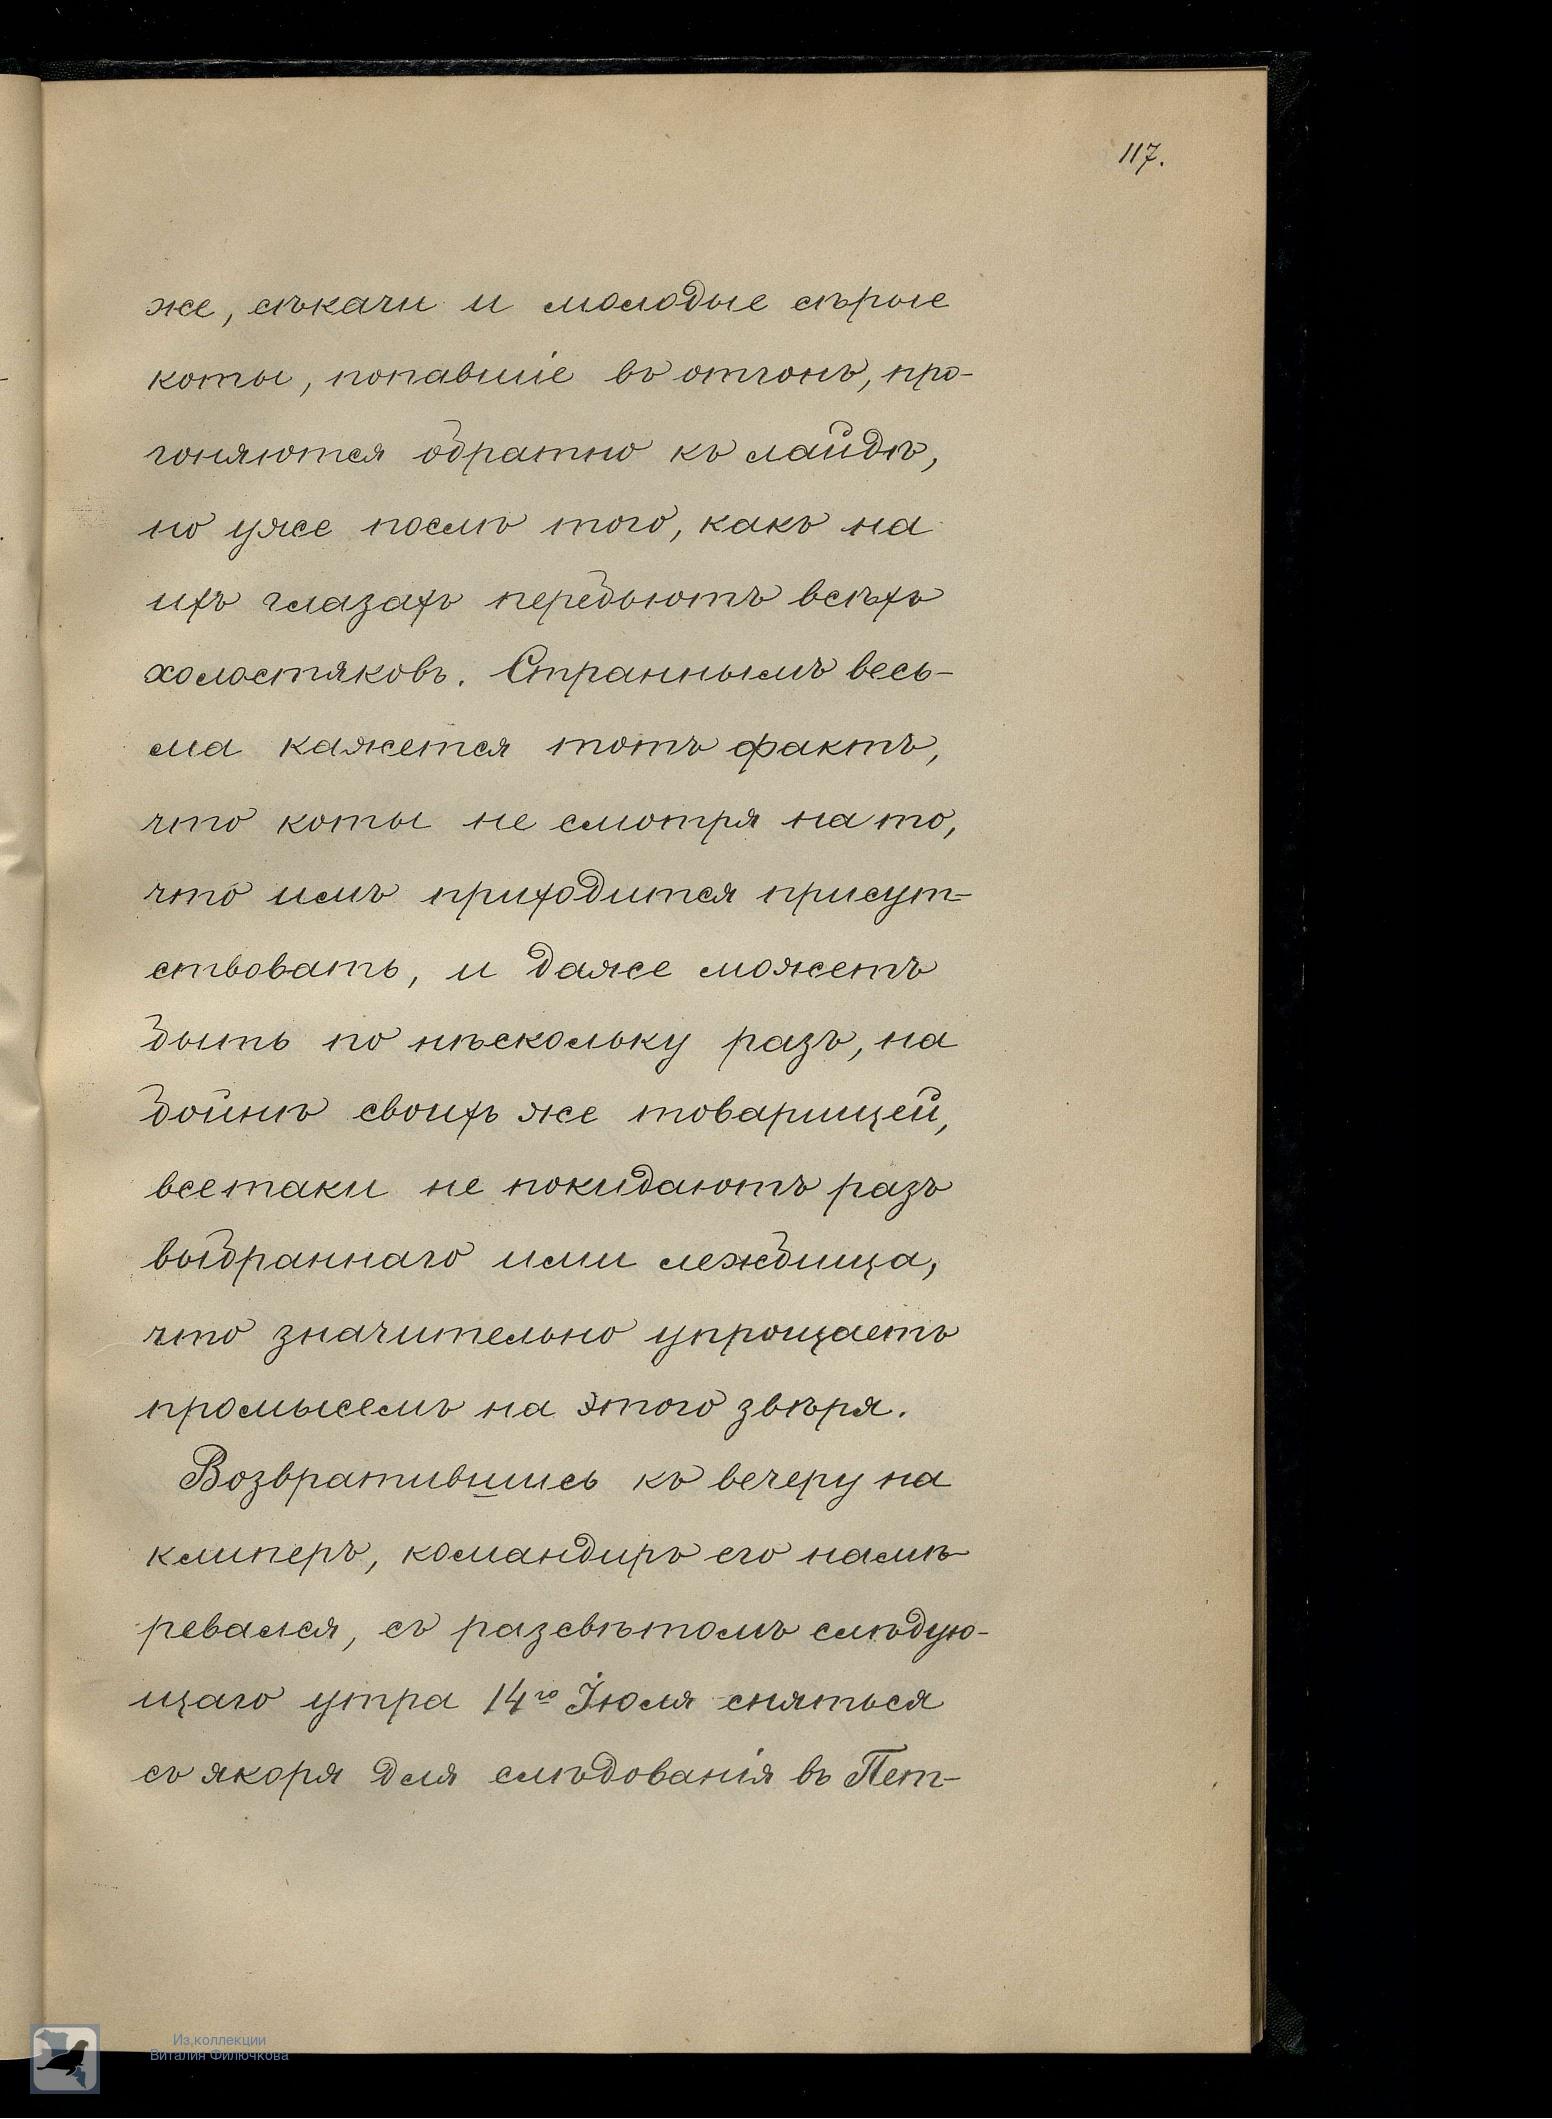 117.
же, сѣкачи и молодые сѣрые
коты, попавшіе въ отгонъ, про-
гоняются обратно къ лайдѣ,
но уже послѣ того, какъ на
ихъ глазахъ перебьютъ всѣхъ
холостяковъ. Страннымъ весь-
ма кажется тотъ фактъ,
что коты не смотря на то,
что имъ приходится присут-
ствовать, и даже можетъ
быть по нѣскольку разъ, на
бойнѣ своихъ же товарищей,
всетаки не покидаютъ разъ
выбраннаго ими лежбища,
что значительно упрощаетъ
промыселъ на этого звѣря.
Возвратившись къ вечеру на
клиперъ, командиръ его намѣ-
ревался, съ разсвѣтомъ слѣдую-
щаго утра 14го Іюля сняться
съ якоря для слѣдованія въ Пет-
Из коллекции
Виталия Филючкова